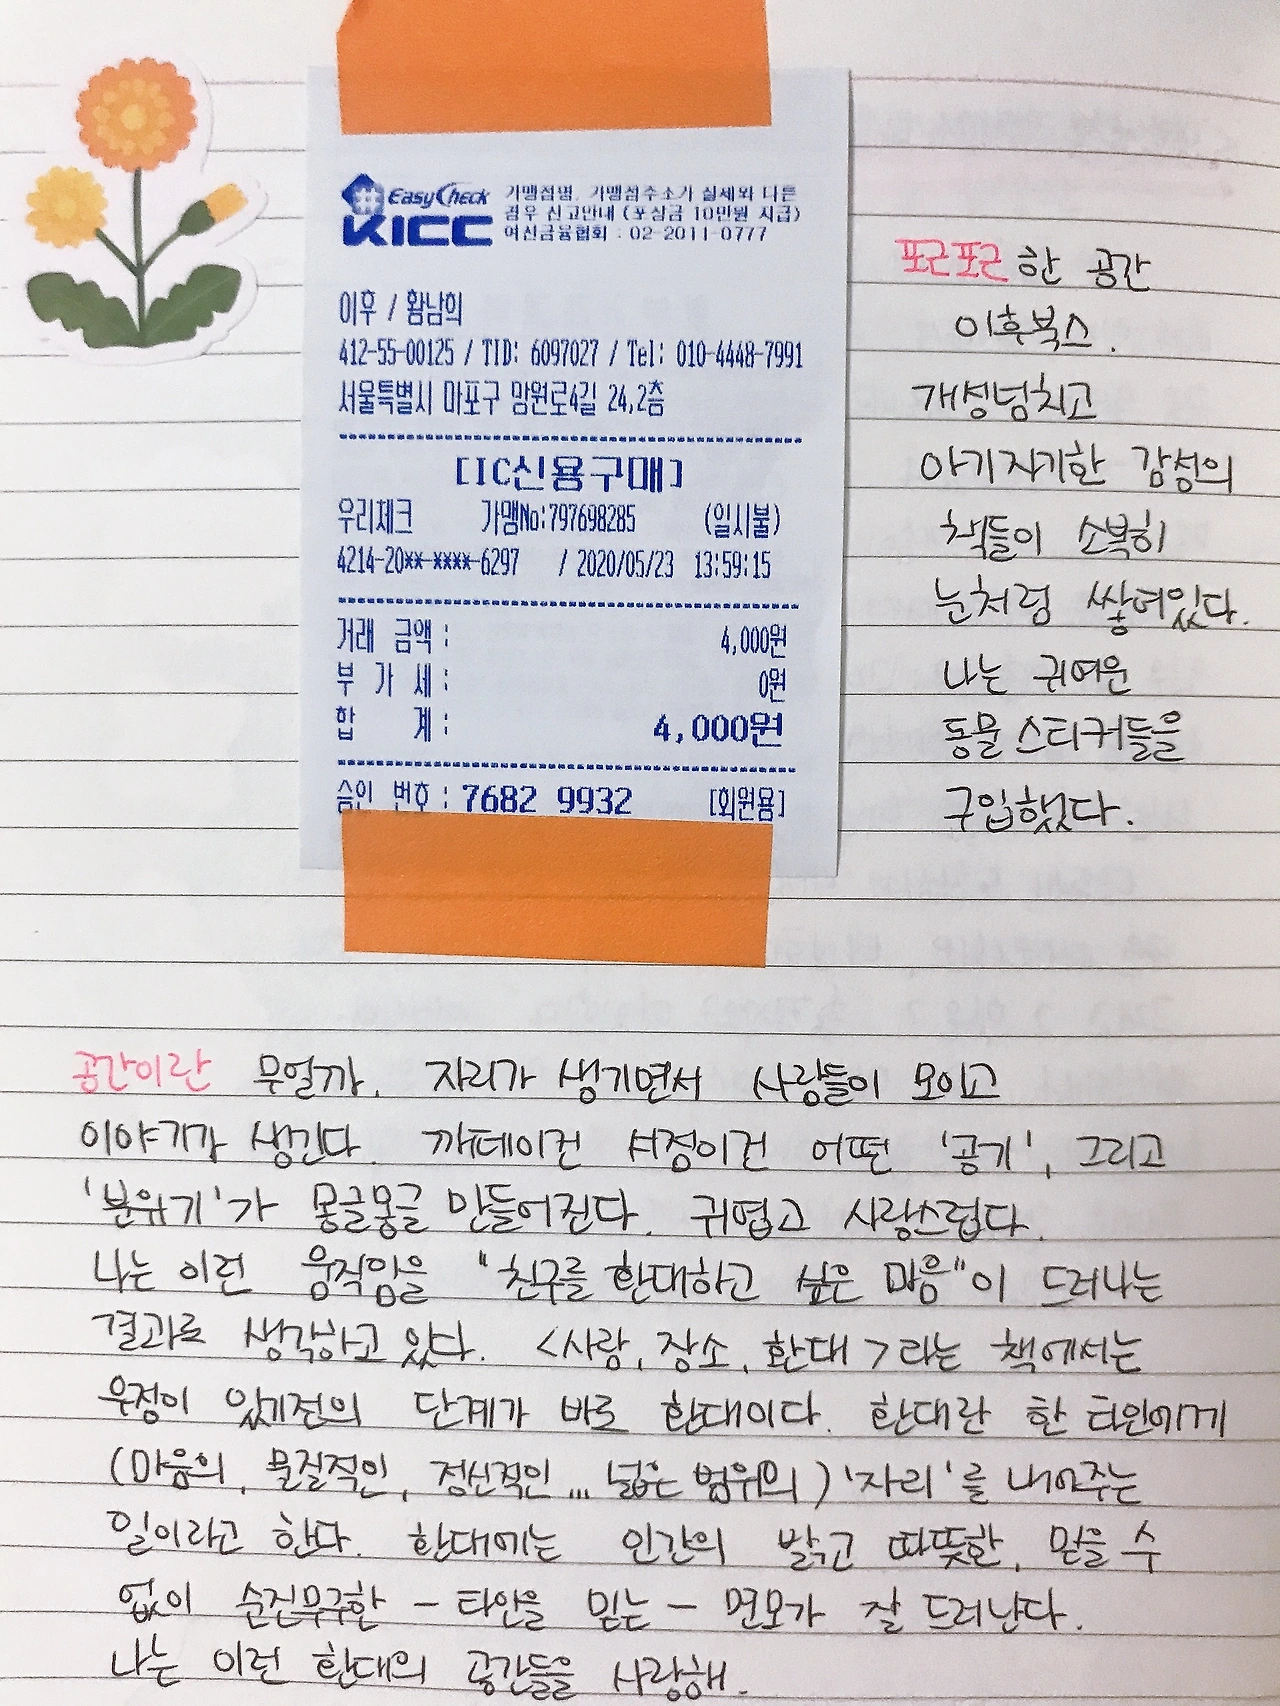 EasyCheck
KICC
가맹점명, 가맹점주소가 실제와 다른
경우 신고안내 (포상금 10만원 지급)
여신금융협회 : 02-2011-0777
이후 / 황남희
412-55-00125 / TID: 6097027 / Tel: 010-4448-7991
서울특별시 마포구 망원로4길 24,2층
[IC신용구매]
우리체크 가맹No:797698285 (일시불)
4214-20**-****-6297 / 2020/05/23 13:59:15
거래 금액 : 4,000원
부 가 세 : 0원
합 계 : 4,000원
승인 번호 : 7682 9932 [회원용]
포근포근한 공간
이후북스.
개성넘치고
아기자기한 감성의
책들이 소복히
눈처럼 쌓여있다.
나는 귀여운
동물 스티커들을
구입했다.
공간이란 무얼까. 자리가 생기면서 사람들이 모이고
이야기가 생긴다. 까페이건 서점이건 어떤 '공기', 그리고
'분위기'가 몽글몽글 만들어진다. 귀엽고 사랑스럽다.
나는 이런 움직임을 "친구를 환대하고 싶은 마음"이 드러나는
결과로 생각하고 있다. <사람, 장소, 환대>라는 책에서는
우정이 있기전의 단계가 바로 환대이다. 환대란 한 타인에게
(마음의, 물질적인, 정신적인... 넓은 범위의) '자리'를 내어주는
일이라고 한다. 환대에는 인간의 밝고 따뜻한, 믿을 수
없이 순진무구한 - 타인을 믿는 - 면모가 잘 드러난다.
나는 이런 환대의 공간들을 사랑해.